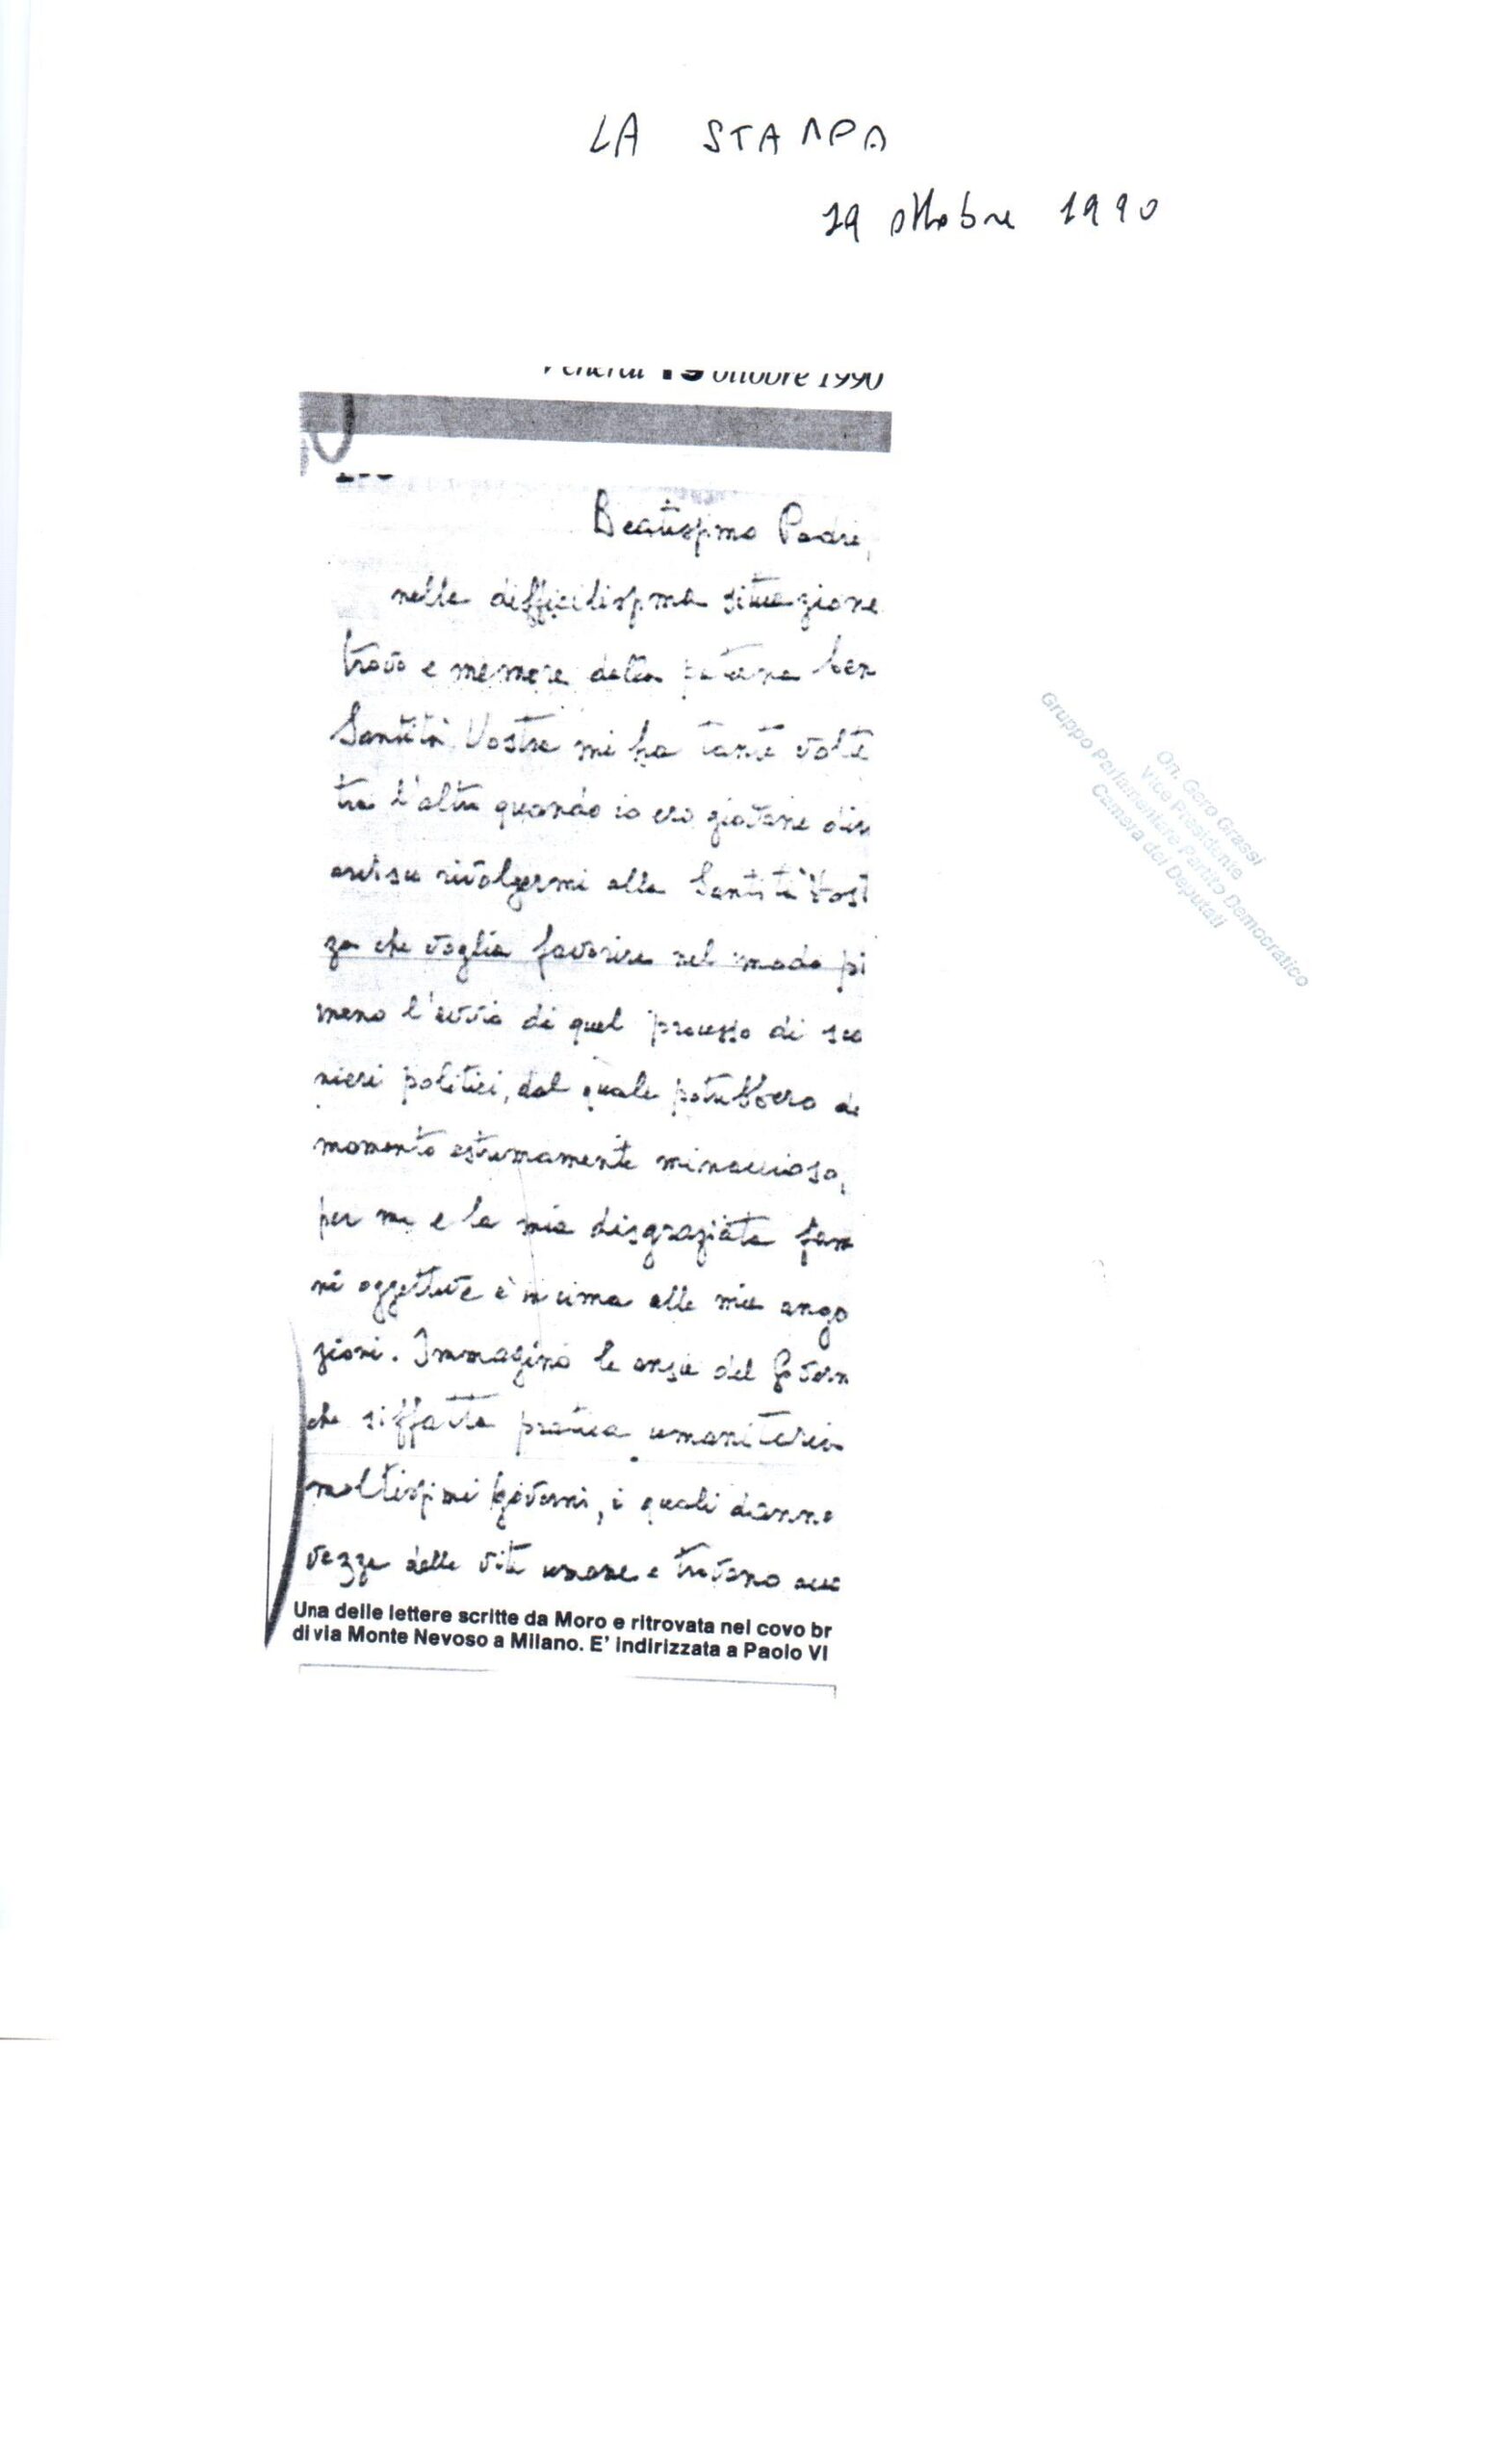 LA STAMPA
19 ottobre 1990
Venerdì 19 ottobre 1990
Beatissimo Padre,
nella difficilissima situazione
trovo e memore della paterna ben
Santità Vostra mi ha tante volte
tra l'altro quando io ero giovane dir
ardisco rivolgermi alla Santità Vost
za che voglia favorire nel modo pi
meno l'avvio di quel processo di sca
nieri politici, dal quale potrebbero de
momento estremamente minaccioso,
per me e la mia disgraziata fam
ni oggettive è in cima alle mie ango
zioni. Immagino le ansie del Govern
che siffatta pratica umanitaria
moltissimi Governi, i quali danno
vezza delle vite umane e trovano acc
Una delle lettere scritte da Moro e ritrovata nel covo br
di via Monte Nevoso a Milano. E' indirizzata a Paolo VI
On. Gero Grassi
Vice Presidente
Gruppo Parlamentare Partito Democratico
Camera dei Deputati